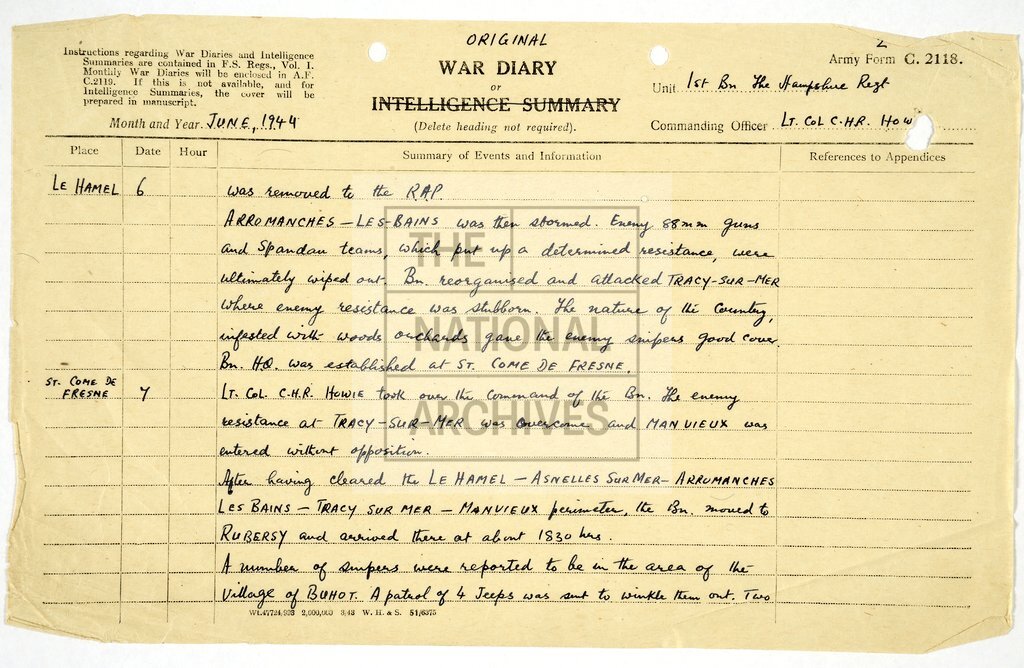 ORIGINAL
2
Instructions regarding War Diaries and Intelligence
Summaries are contained in F.S. Regs., Vol. I.
Monthly War Diaries will be enclosed in A.F.
C.2119. If this is not available, and for
Intelligence Summaries, the cover will be
prepared in manuscript.
Month and Year JUNE, 1944
WAR DIARY
or
INTELLIGENCE SUMMARY
(Delete heading not required).
Army Form C. 2118.
Unit 1st Bn The Hampshire Regt
Commanding Officer LT. COL C.H.R. HOW
Place Date Hour Summary of Events and Information References to Appendices
LE HAMEL 6 was removed to the RAP.
ARROMANCHES – LES-BAINS was then stormed. Enemy 88mm guns
and Spandau teams, which put up a determined resistance, were
ultimately wiped out. Bn. reorganised and attacked TRACY-SUR-MER
where enemy resistance was stubborn. The nature of the Country,
infested with woods orchards gave the enemy snipers good cover.
Bn. HQ. was established at ST. COME DE FRESNE.
ST. COME DE FRESNE 7 LT. COL. C.H.R. HOWIE took over the command of the Bn. The enemy
resistance at TRACY-SUR-MER was overcome and MANVIEUX was
entered without opposition.
After having cleared the LE HAMEL – ASNELLES SUR MER – ARRUMANCHES
LES BAINS – TRACY SUR MER – MANVIEUX perimeter, the Bn. moved to
RUBERSY and arrived there at about 1830 hrs.
A number of snipers were reported to be in the area of the
village of BUHOT. A patrol of 4 Jeeps was sent to winkle them out. Two
THE
NATIONAL
ARCHIVES
Wt.47724,993 2,000,000 3,43 W. H. & S. 51/6375